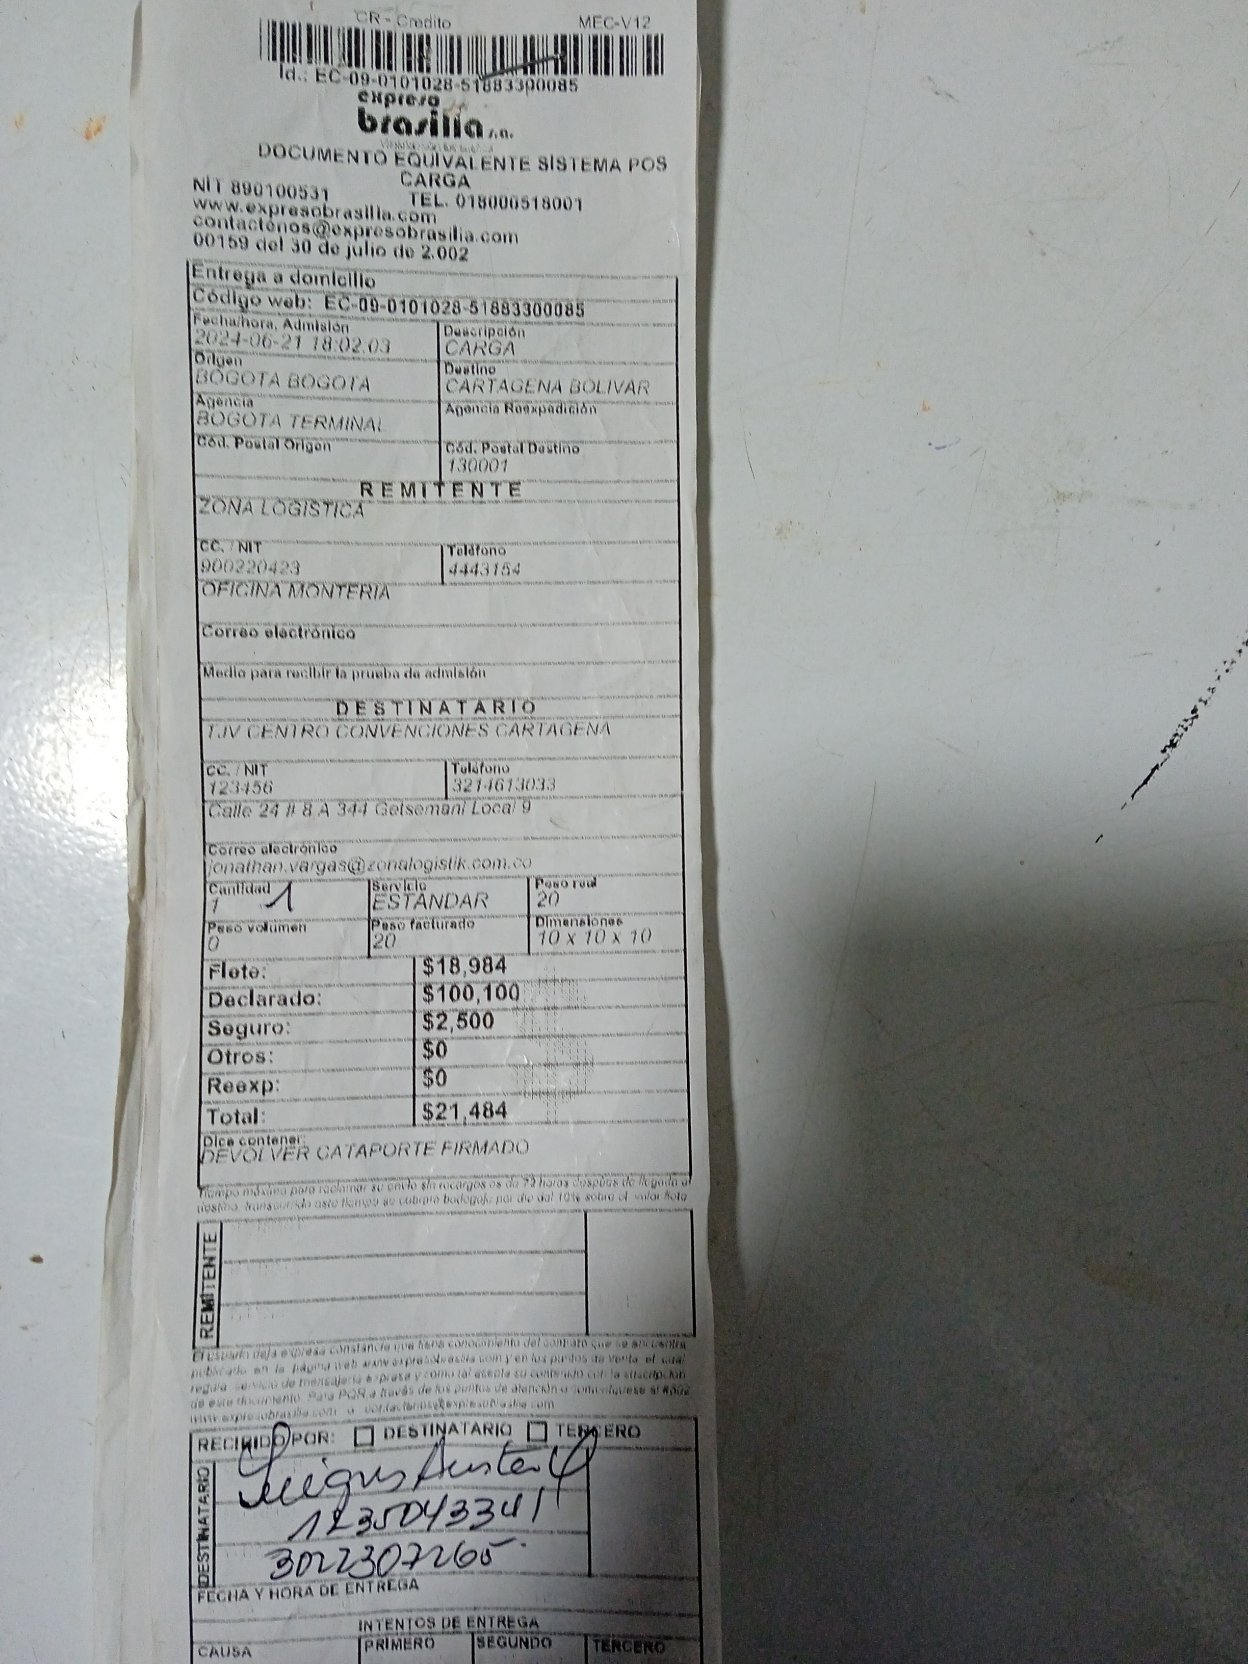 CR - Credito MEC-V12
Id.: EC-09-0101028-51883300085
expreso
brasilia s.a.
DOCUMENTO EQUIVALENTE SISTEMA POS
CARGA
NIT 890100531 TEL. 018000518001
www.expresobrasilia.com
contactenos@expresobrasilia.com
00159 del 30 de julio de 2.002
Entrega a domicilio
Código web: EC-09-0101028-51883300085
Fecha/hora, Admisión Descripción
2024-06-21 18:02.03 CARGA
Origen Destino
BOGOTA BOGOTA CARTAGENA BOLIVAR
Agencia Agencia Reexpedición
BOGOTA TERMINAL
Cód. Postal Origen Cód. Postal Destino
130001
REMITENTE
ZONA LOGISTICA
CC. / NIT Teléfono
900220423 4443154
OFICINA MONTERIA
Correo electrónico
Medio para recibir la prueba de admisión
DESTINATARIO
TJV CENTRO CONVENCIONES CARTAGENA
CC. / NIT Teléfono
123456 3214613033
Calle 24 # 8 A 344 Getsemani Local 9
Correo electrónico
jonathan.vargas@zonalogistik.com.co
Cantidad Servicio Peso real
1 1 ESTANDAR 20
Peso volumen Peso facturado Dimensiones
0 20 10 x 10 x 10
Flete: $18,984
Declarado: $100,100
Seguro: $2,500
Otros: $0
Reexp: $0
Total: $21,484
Dice contener:
DEVOLVER CATAPORTE FIRMADO
Tiempo máximo para reclamar su envío sin recargos es de 72 horas después de llegada a
destino, transcurrido este tiempo se cobrara bodegaje por día del 10% sobre el valor flete
REMITENTE
El usuario deja expresa constancia que tiene conocimiento del contrato que se encuentra
publicado en la página web www.expresobrasilia.com y en los puntos de venta, el cual
regula servicio de mensajería expresa y como tal acepta su contenido con la suscripción
de este documento. Para PQR a través de los puntos de atención o
www.expresobrasilia.com o contactenos@expresobrasilia.com
RECIBIDO POR: DESTINATARIO TERCERO
DESTINATARIO
1235043341
3022307265
FECHA Y HORA DE ENTREGA
INTENTOS DE ENTREGA
CAUSA PRIMERO SEGUNDO TERCERO